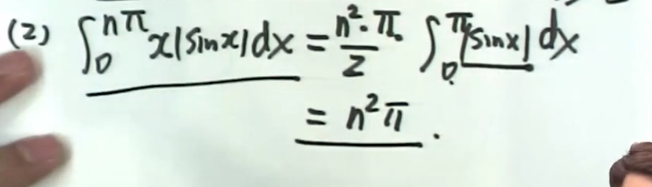 (2) ∫₀^{nπ} x|sinx|dx = \frac{n²·π}{2} ∫₀^{π} |sinx| dx
= n²π.